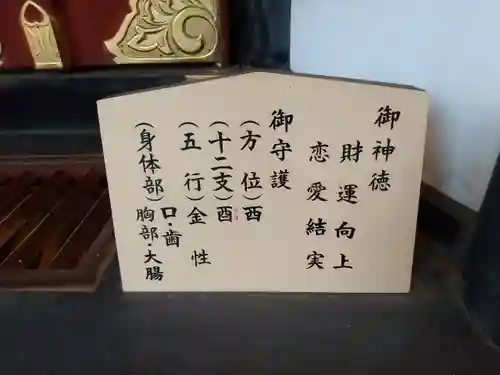 御神徳
財運向上
恋愛結実
御守護
(方位)西
(十二支)酉
(五行)金性
(身体部)口・歯
胸部・大腸